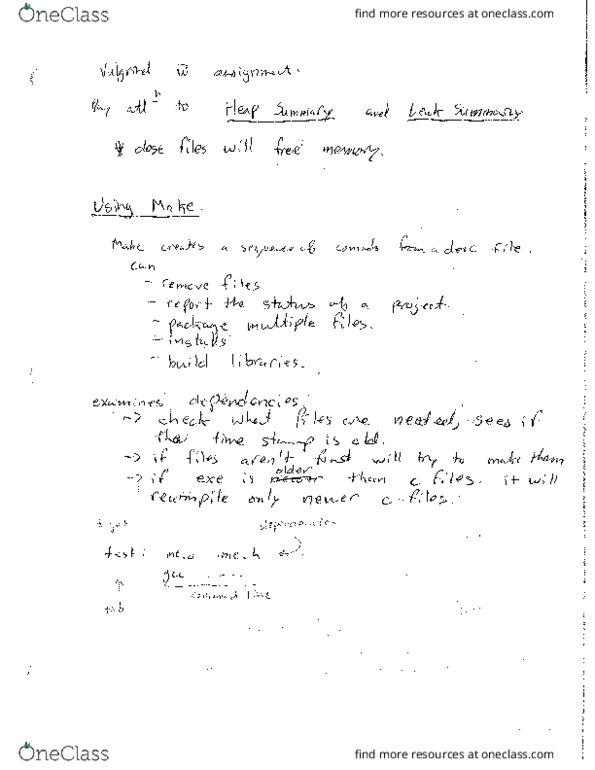 OneClass
find more resources at oneclass.com
Valgrind w assignment.
Pay attn to Heap Summary and Leak Summary
close files will free memory.
Using Make.
Make creates a sequence of comands from a desc file.
can
- remove files
- report the status of a project.
- package multiple files.
- installs
- build libraries.
examines dependancies,
-> check what files are needed, sees if
their time stamp is old.
-> if files aren't found will try to make them
older
-> if exe is than c files. it will
recompile only newer c-files.
dependencies
test: me.c me.h
gcc ....
command line
tab
OneClass
find more resources at oneclass.com